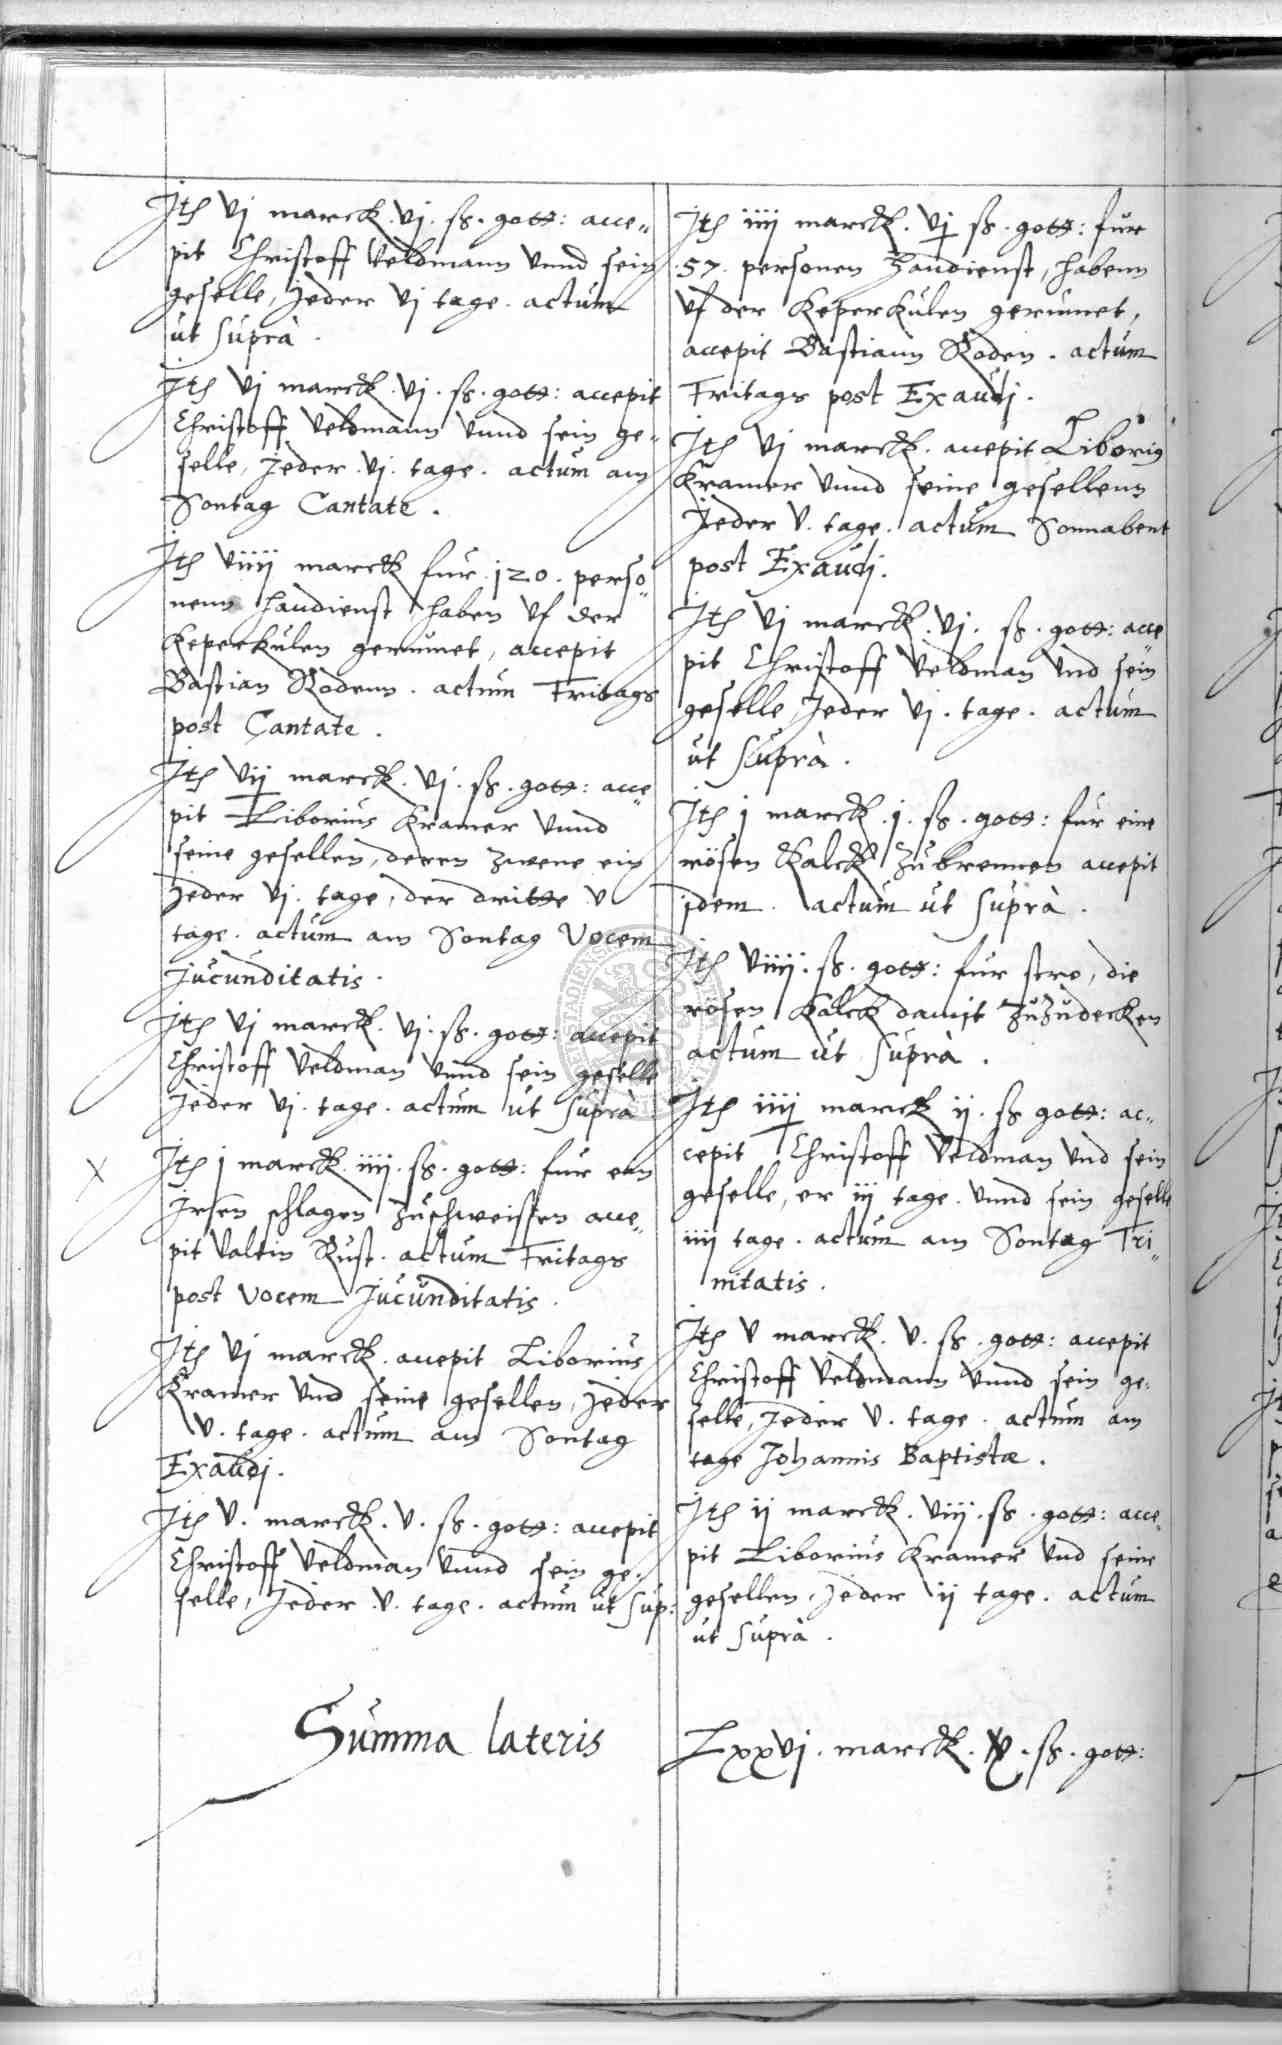 Ite vj marck. vj. ss. gott: acce„
pit Christoff Veldmann vnnd sein
geselle, Jeder vj tage. actum
ut suprà.
Ite vj marck. vj. ss. gott: accepit
Christoff Veldmann vnnd sein ge„
selle, Jeder. vj. tage. actum am
Sontag Cantate.
Ite viiij marck fur. 120. perso„
nenn handienst haben vf der
Keperkulen gerumet, accepit
Bastian Rodenn. actum Fritags
post Cantate.
Ite vij marck. vj. ss. gott: acce„
pit Liborius Kramer vnnd
seine gesellen, deren zwene ein
Jeder vj. tage, der dritte v
tage. actum am Sontag Vocem
Jucunditatis.
Ite vj marck. vj. ss. gott: accepit
Christoff Veldman vnnd sein geselle
Jeder vj. tage. actum ut suprà
Ite j marck. iiij. ss. gott: fur ein
Jrsen schlagen zuschweissen acce„
pit Valtin Rust. actum Fritags
post Vocem Jucunditatis.
Ite vj marck. accepit Liborius
Kramer vnd seine gesellen, Jeder
v. tage. actum am Sontag
Exaudj.
Ite v. marck. v. ss. gott: accepit
Christoff Veldman vnnd sein ge„
selle, Jeder. v. tage. actum ut sup:
Ite iiij marck. vj ss. gott: fur
.57. personen handienst, habenn
vf der Keperkulen gerumet,
accepit Bastiann Roden. actum
Fritags post Exaudj.
Ite vj marck. accepit Liborius
Kramer vnnd seine gesellenn
Jeder v. tage. actum Sonnabent
post Exaudj.
Ite vj marck. vj. ss. gott: acce„
pit Christoff Veldman vnd sein
geselle Jeder vj. tage. actum
ut suprà.
Ite j marck. j. ss. gott: fur eine
rösen Kalck zubrennen accepit
jdem. actum ut suprà.
Ite viiij. ss. gott: fur stro, die
rösen Kalck damit zuzudecken
actum ut suprà.
Ite iiij marck ij. ss gott: ac„
cepit Christoff Veldman vnd sein
geselle, er iij tage. vnnd sein geselle
iiij tage. actum am Sontag Tri„
nitatis.
Ite v marck. v. ss. gott: accepit
Christoff Veldmann vnnd sein ge„
selle, Jeder v. tage. actum am
tage Johannis Baptistæ.
Ite ij marck. viij. ss. gott: acce„
pit Liborius Kramer vnd seine
gesellen, Jeder ij tage. actum
ut suprà.
Summa lateris Lxxvj. marck. ss. gott: